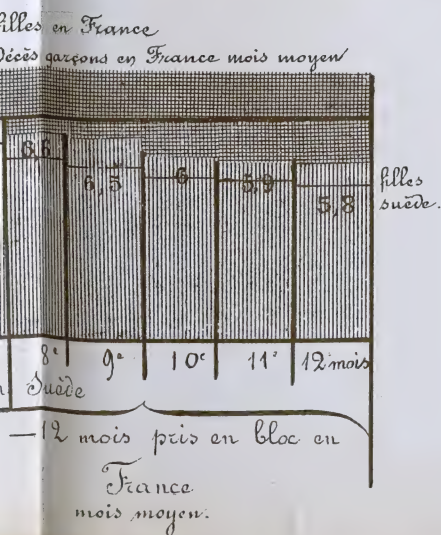 filles en France
Décès garçons en France mois moyen
6,6
6,5
6
5,9
5,8
filles
suède.
8e 9e 10e 11e 12 mois
Suède
— 12 mois pris en bloc en
France
mois moyen.